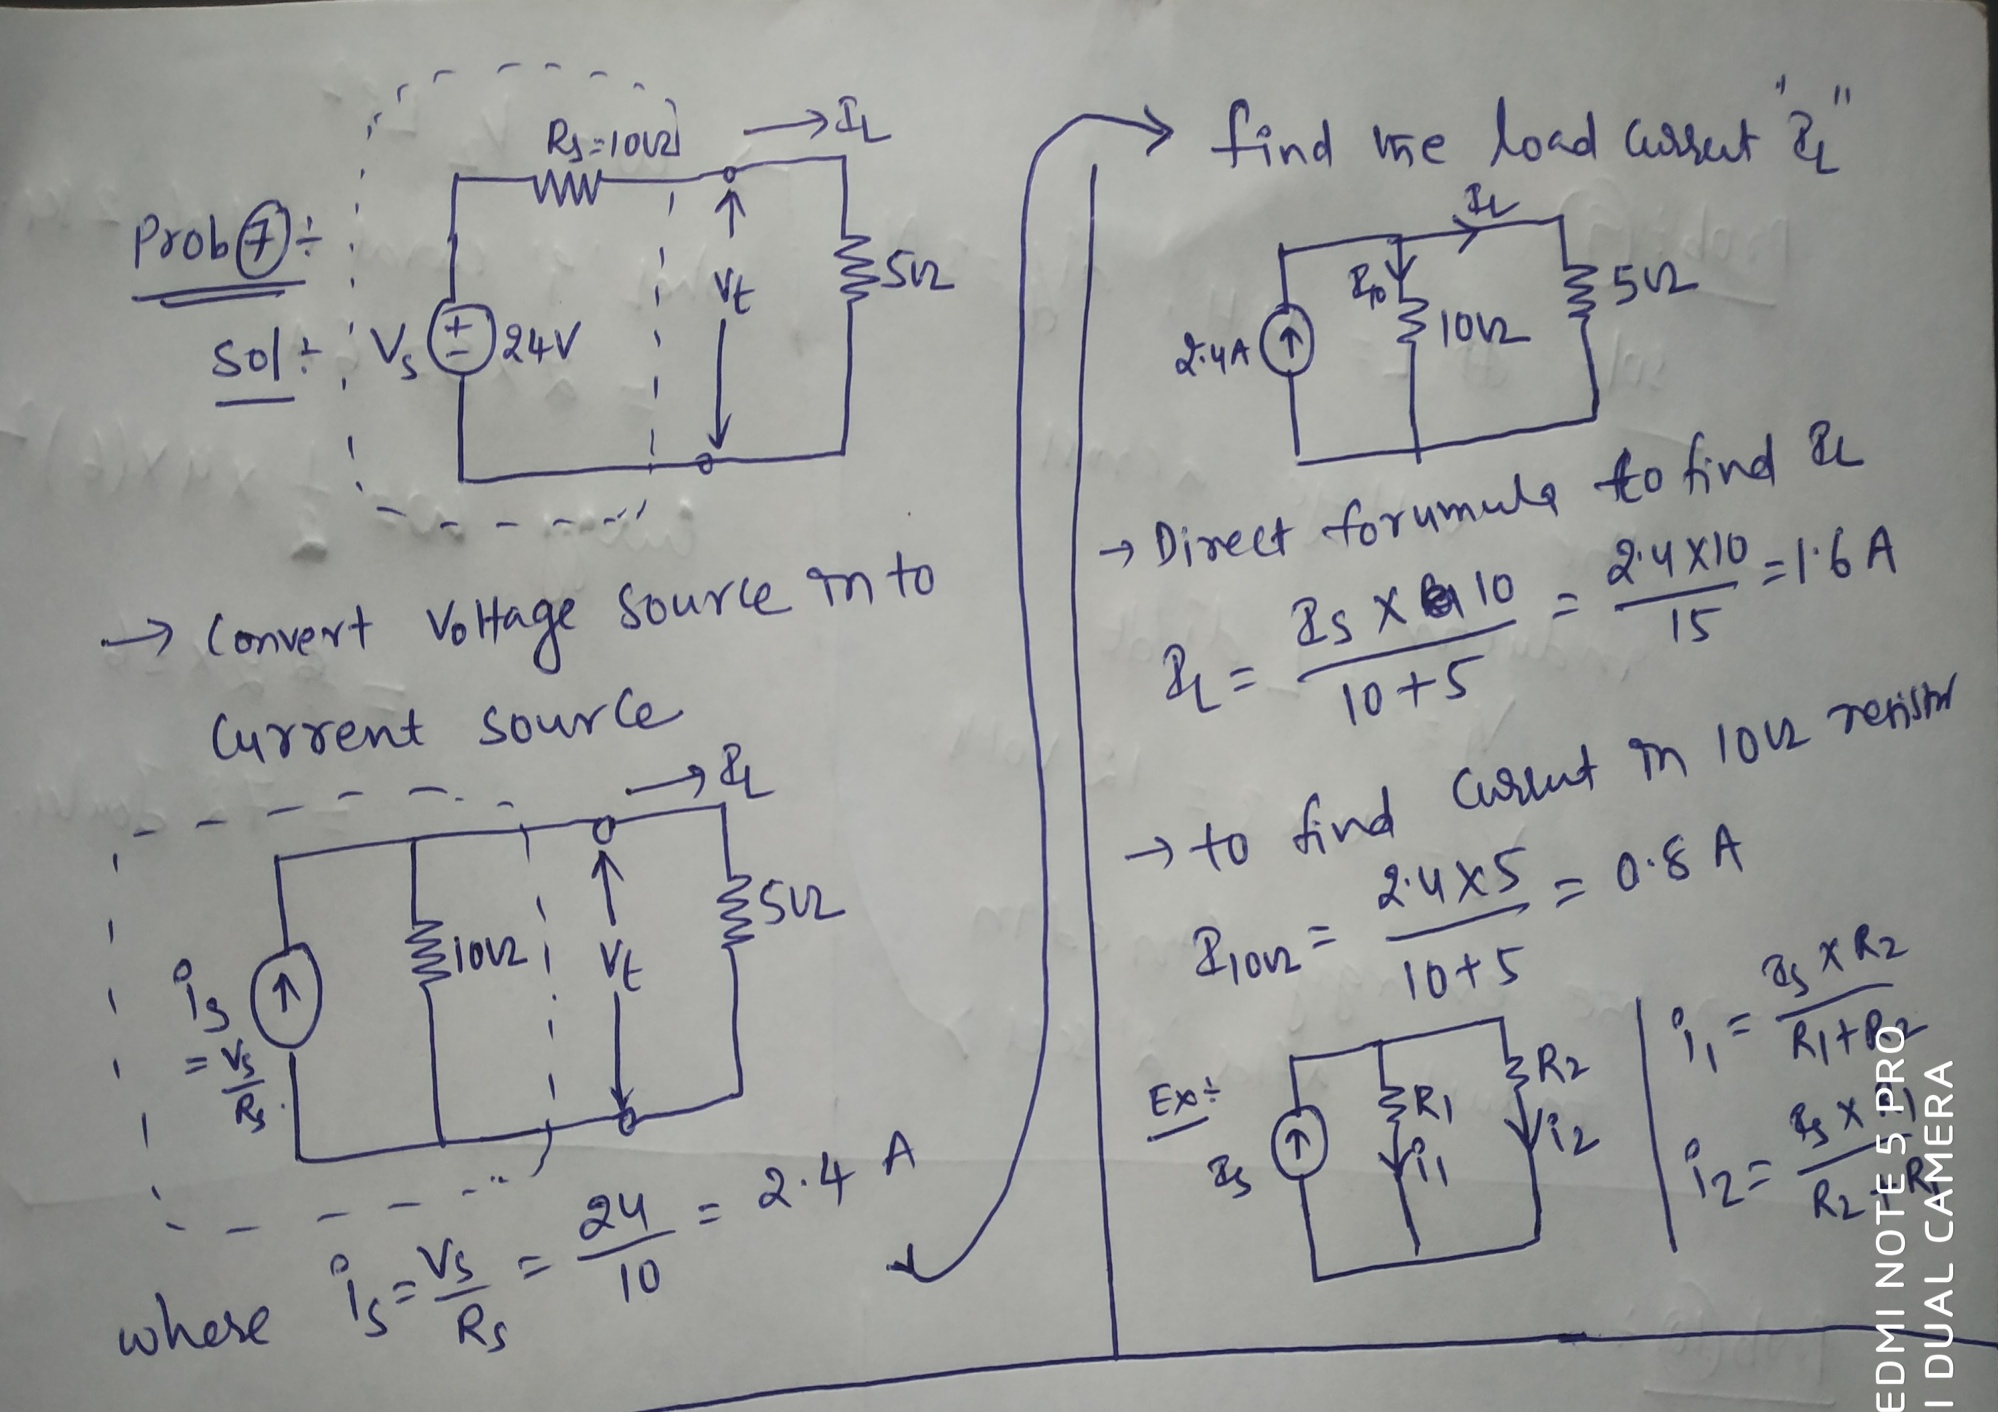 Prob 7 ÷
Sol ÷
Rs=10Ω
→ IL
Vs
+
-
24V
Vt
5Ω
→ Convert Voltage Source in to
Current source
→ IL
is
= Vs/Rs
10Ω
Vt
5Ω
where is = Vs/Rs = 24/10 = 2.4 A
→ find the load current "IL"
IL
I10
2.4A
10Ω
5Ω
→ Direct forumula to find IL
IL = Is × 10 / 10+5 = 2.4×10 / 15 = 1.6 A
→ to find current in 10Ω resistor
I10Ω = 2.4×5 / 10+5 = 0.8 A
Ex ÷
Is
R1
i1
R2
i2
i1 = Is × R2 / R1+R2
i2 = Is × R1 / R2+R1
EDMI NOTE 5 PRO
I DUAL CAMERA